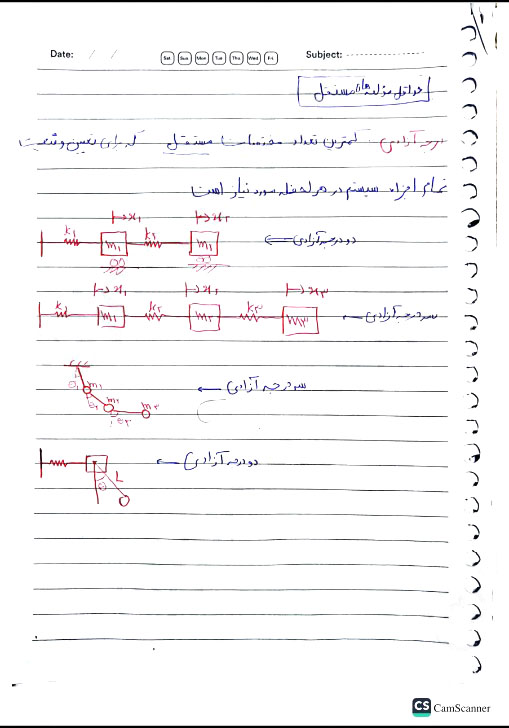 Date: / / Sat Sun Mon Tue Thu Wed Fri Subject:
حداقل مؤلفه های مستقل
درجه آزادی: کمترین تعداد مختصات مستقل که برای تعیین وضعیت
تمام اجزاء سیستم در هر لحظه مورد نیاز است
x₁ x₂
k₁ m₁ k₂ m₁ دو درجه آزادی
x₁ x₂ x₃
k₁ m₁ k₂ m₂ k₃ m₃ سه درجه آزادی
θ₁ m₁ θ₂ m₂ θ₃ m₃ سه درجه آزادی
θ L دو درجه آزادی
CS CamScanner